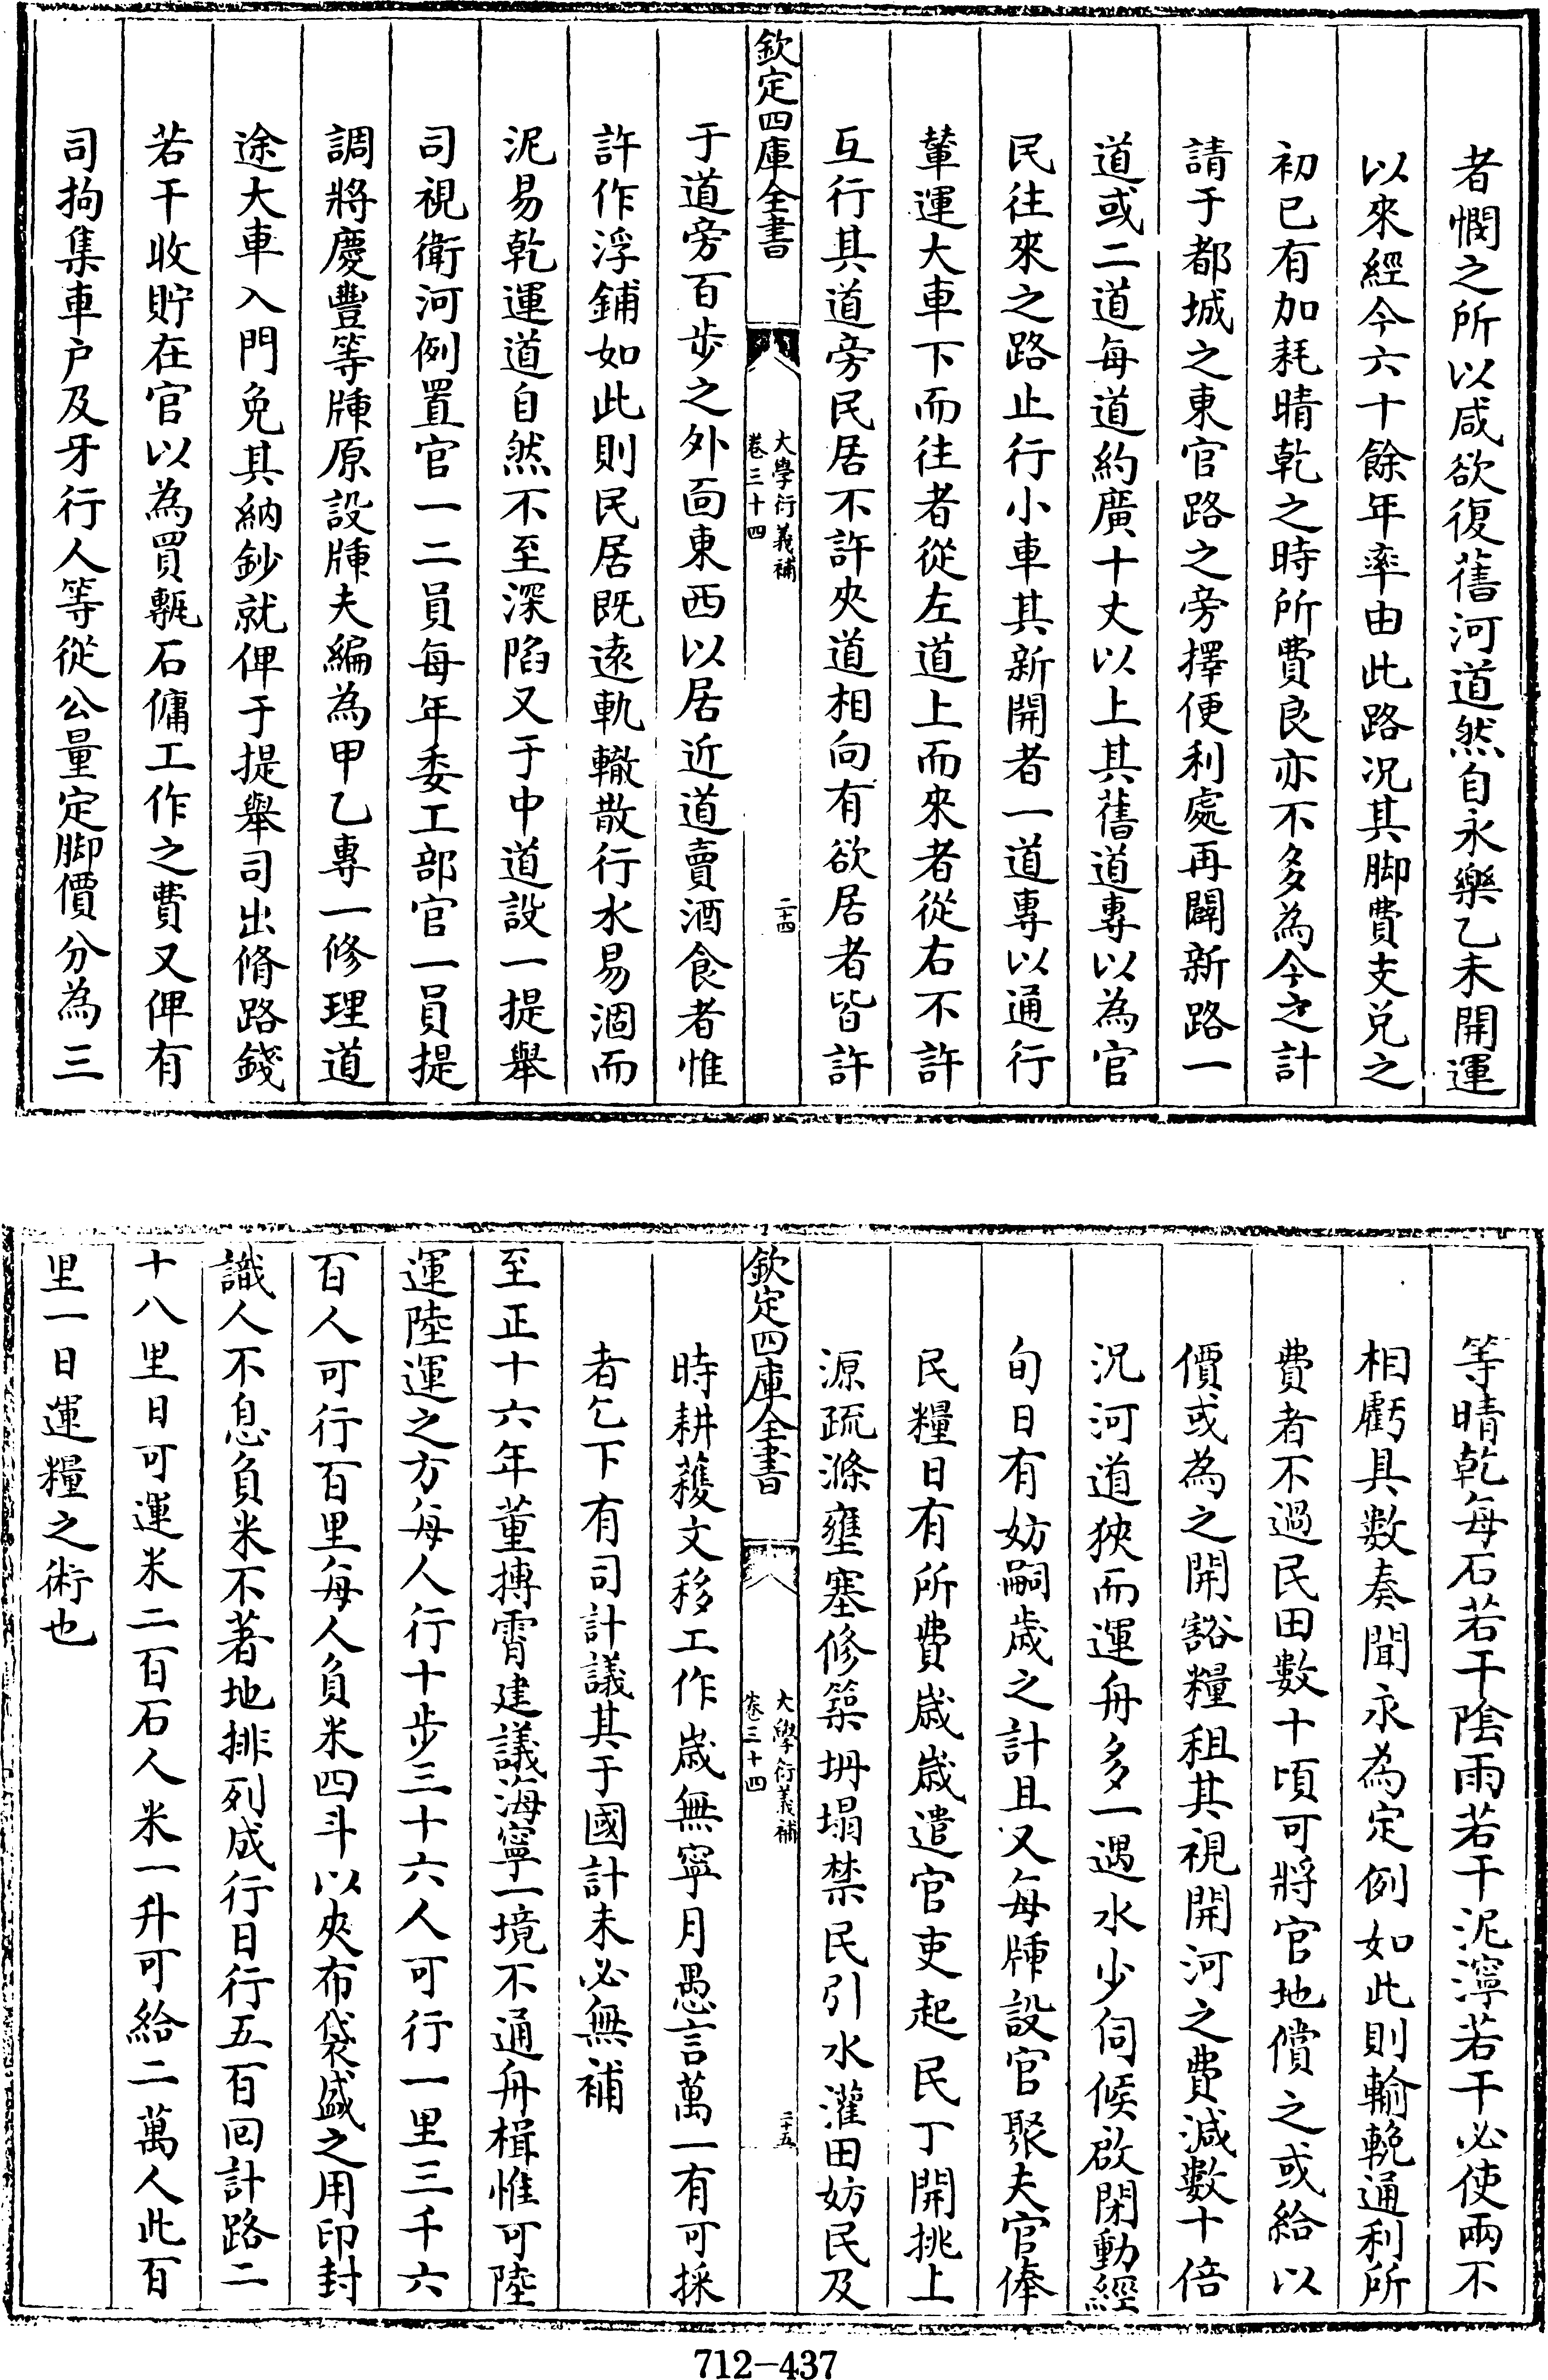 者憫之所以咸欲復舊河道然自永樂乙未開運
以來經今六十餘年率由此路况其脚費支兑之
初已有加耗晴乾之時所費良亦不多為今之計
請于都城之東官路之旁擇便利處再闢新路一
道或二道每道約廣十丈以上其舊道專以為官
民往來之路止行小車其新開者一道專以通行
輦運大車下而往者從左道上而來者從右不許
互行其道旁民居不許夾道相向有欲居者皆許
欽定四庫全書
大學衍義補
卷三十四
二十四
于道旁百步之外面東西以居近道賣酒食者惟
許作浮鋪如此則民居既逺軌轍散行水易涸而
泥易乾運道自然不至深陷又于中道設一提舉
司視衛河例置官一二員每年委工部官一員提
調將慶豐等牐原設牐夫編為甲乙專一修理道
途大車入門免其納鈔就俾于提舉司出脩路錢
若干收貯在官以為買甎石傭工作之費又俾有
司拘集車户及牙行人等從公量定脚價分為三
等晴乾每石若干陰雨若干泥濘若干必使兩不
相虧具數奏聞永為定例如此則輸輓通利所
費者不過民田數十頃可將官地償之或給以
價或為之開豁糧租其視開河之費減數十倍
况河道狹而運舟多一遇水少伺候啟閉動經
旬日有妨嗣歲之計且又每牐設官聚夫官俸
民糧日有所費歲歲遣官吏起民丁開挑上
源疏滌壅塞修築坍塌禁民引水灌田妨民及
欽定四庫全書
大學衍義補
卷三十四
二十五
時耕穫文移工作歲無寧月愚言萬一有可採
者乞下有司計議其于國計未必無補
至正十六年董摶霄建議海寧一境不通舟楫惟可陸
運陸運之方每人行十步三十六人可行一里三千六
百人可行百里每人負米四斗以夾布袋盛之用印封
識人不息負米不著地排列成行日行五百回計路二
十八里日可運米二百石人米一升可給二萬人此百
里一日運糧之術也
712-437